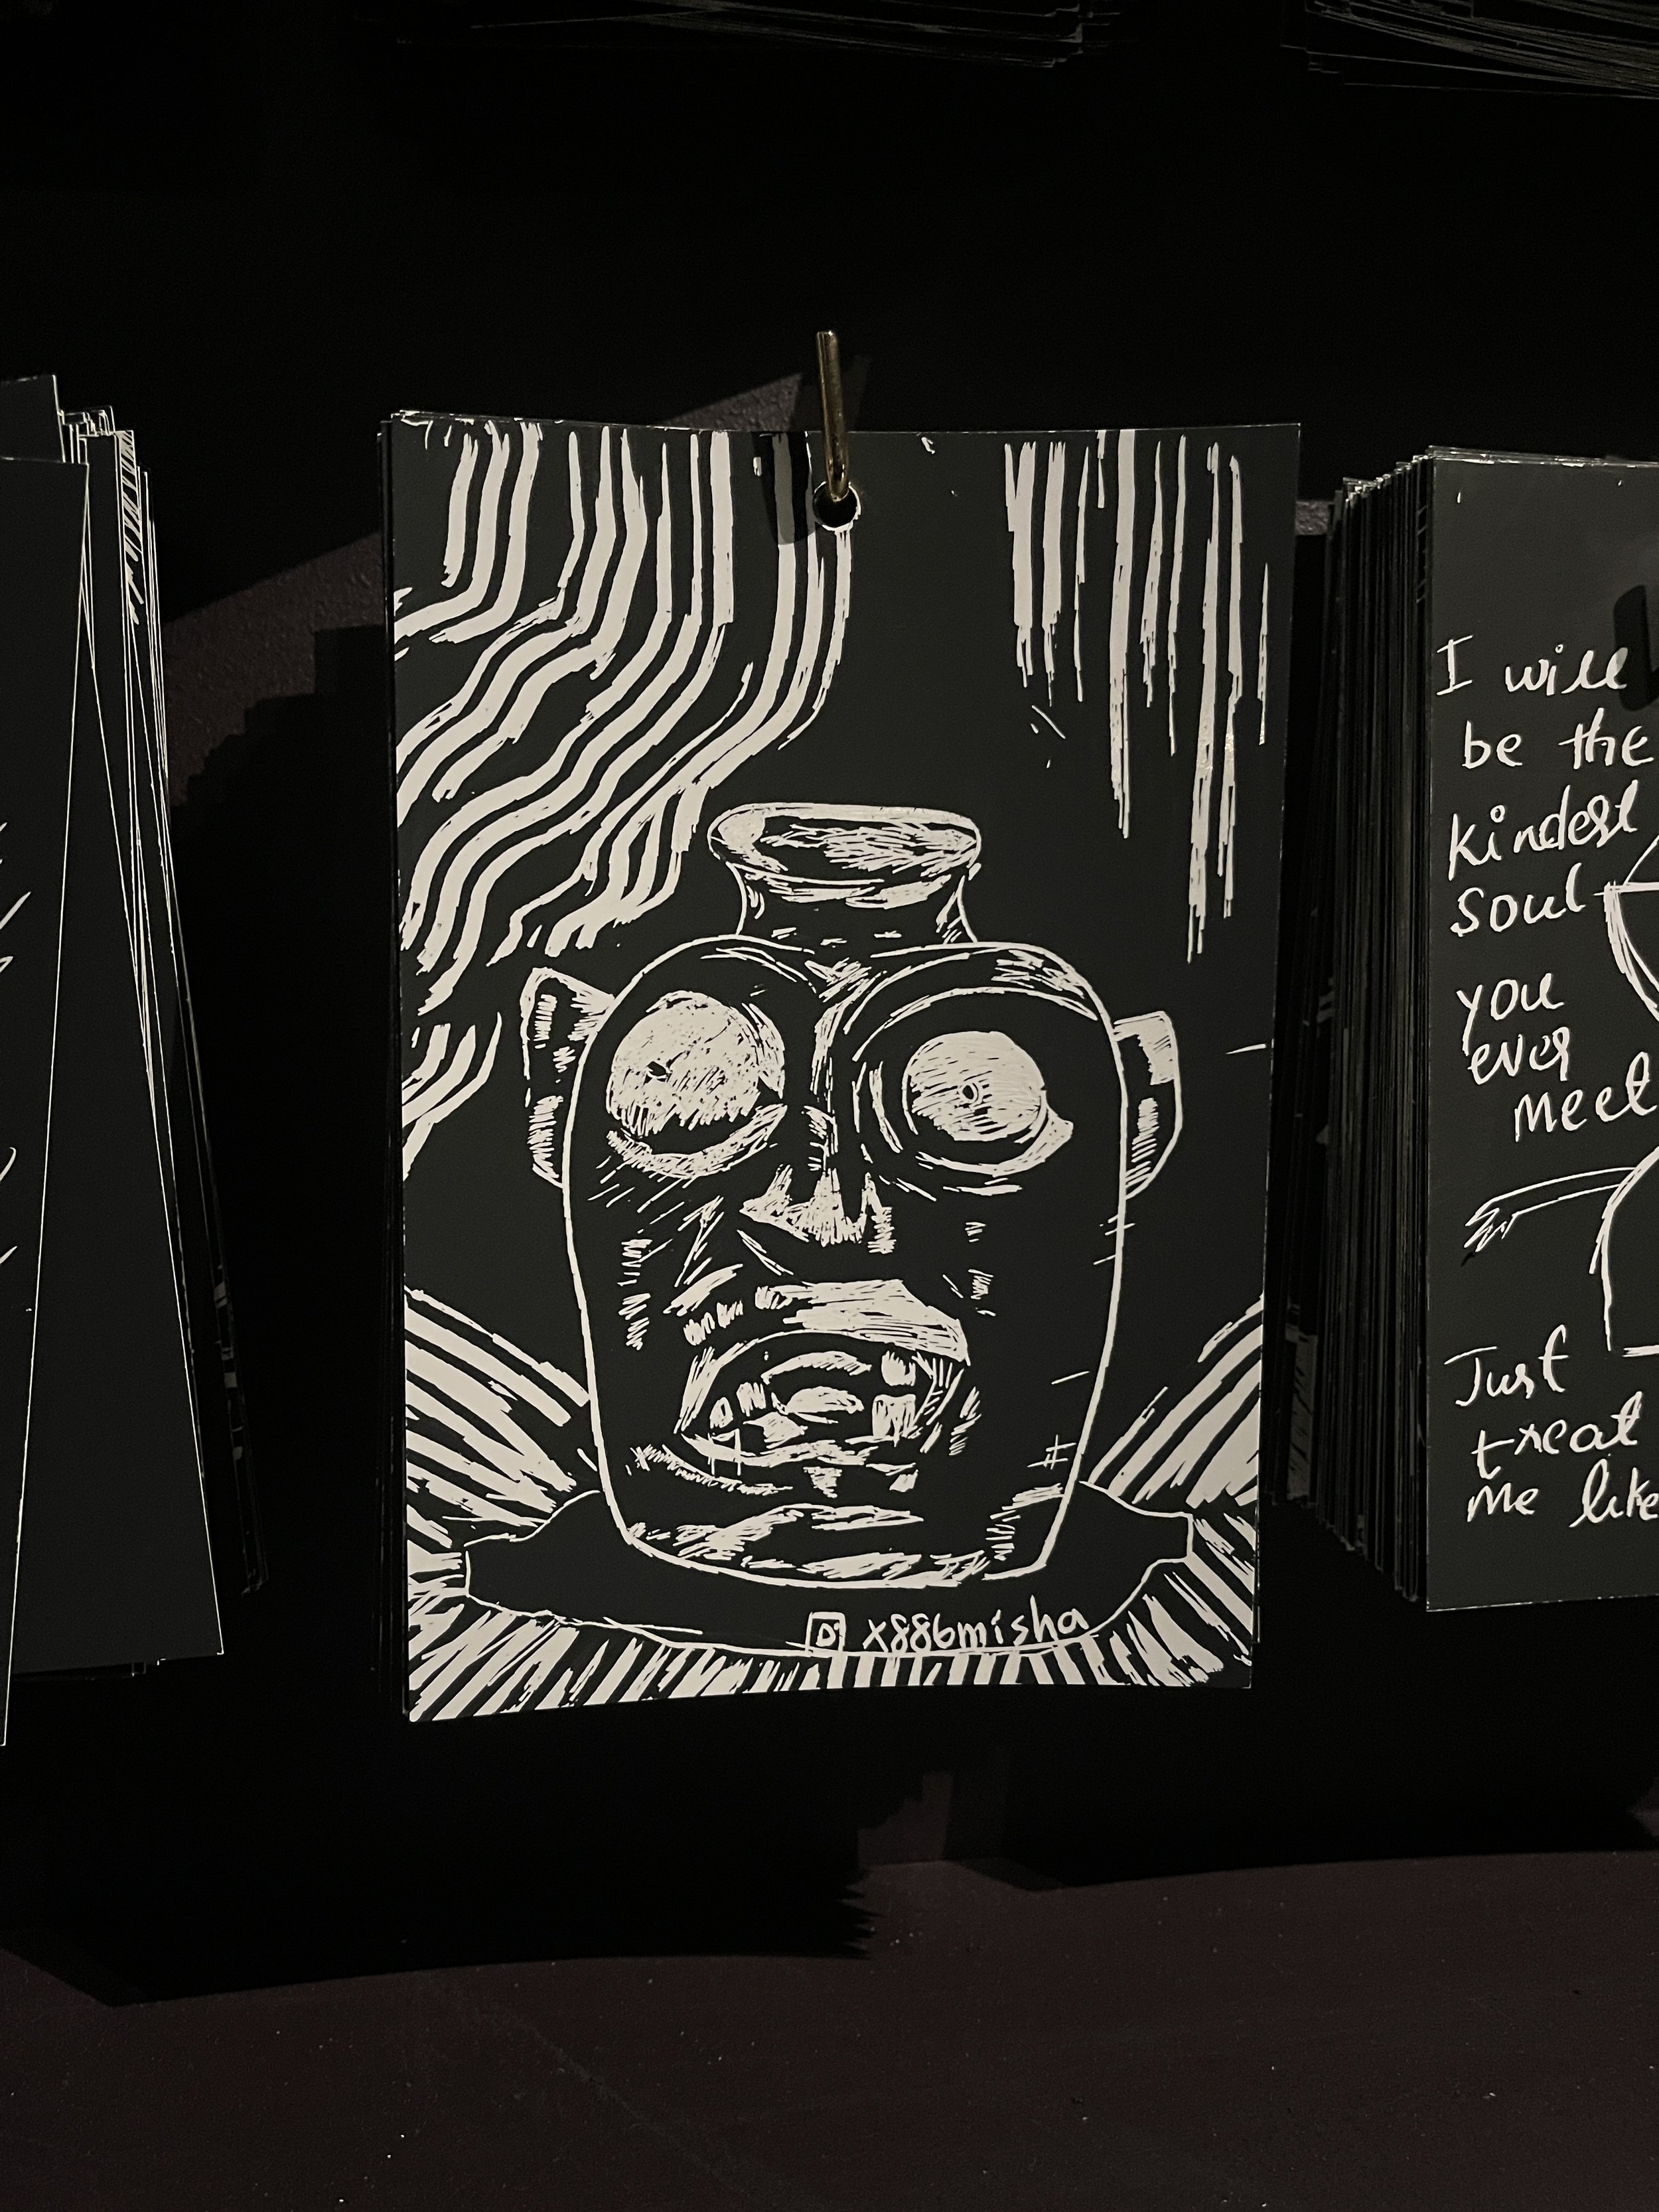 x886misha
I will
be the
kindest
soul
you
ever
meet
Just
treat
me like